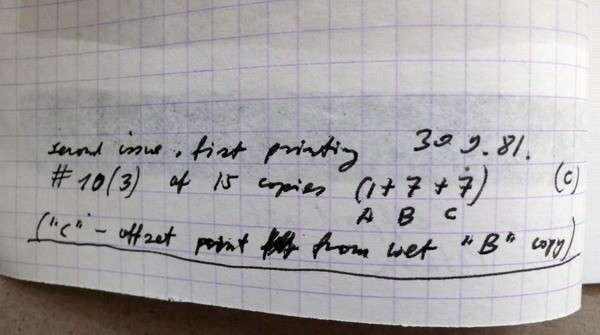 second issue, first printing 30 9. 81.
#10(3) of 15 copies (1+7+7) (C)
A B C
("C" - offset print from wet "B" copy)